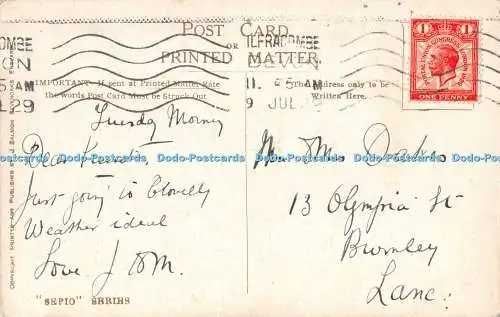 POST CARD
OR
PRINTED MATTER.
ILFRACOMBE
JUL
29
1
1
POSTAL UNION CONGRESS LONDON 1929
ONE PENNY
IMPORTANT—If sent at Printed Matter Rate
the words Post Card Must be Struck Out.
The Address only to be
Written Here.
Tuesday Morning
Just going to Clovelly
Weather ideal
Love J & M.
Mr Mrs
13 Olympia St
Burnley
Lanc:
"SEPIO" SERIES
COPYRIGHT PHOTO-ART PUBLISHED BY J. SALMON SEVENOAKS ENGLAND
Dodo-Postcards Dodo-Postcards Dodo-Postcards Dodo-Postcards Dodo-Postcards Dodo-Postcards